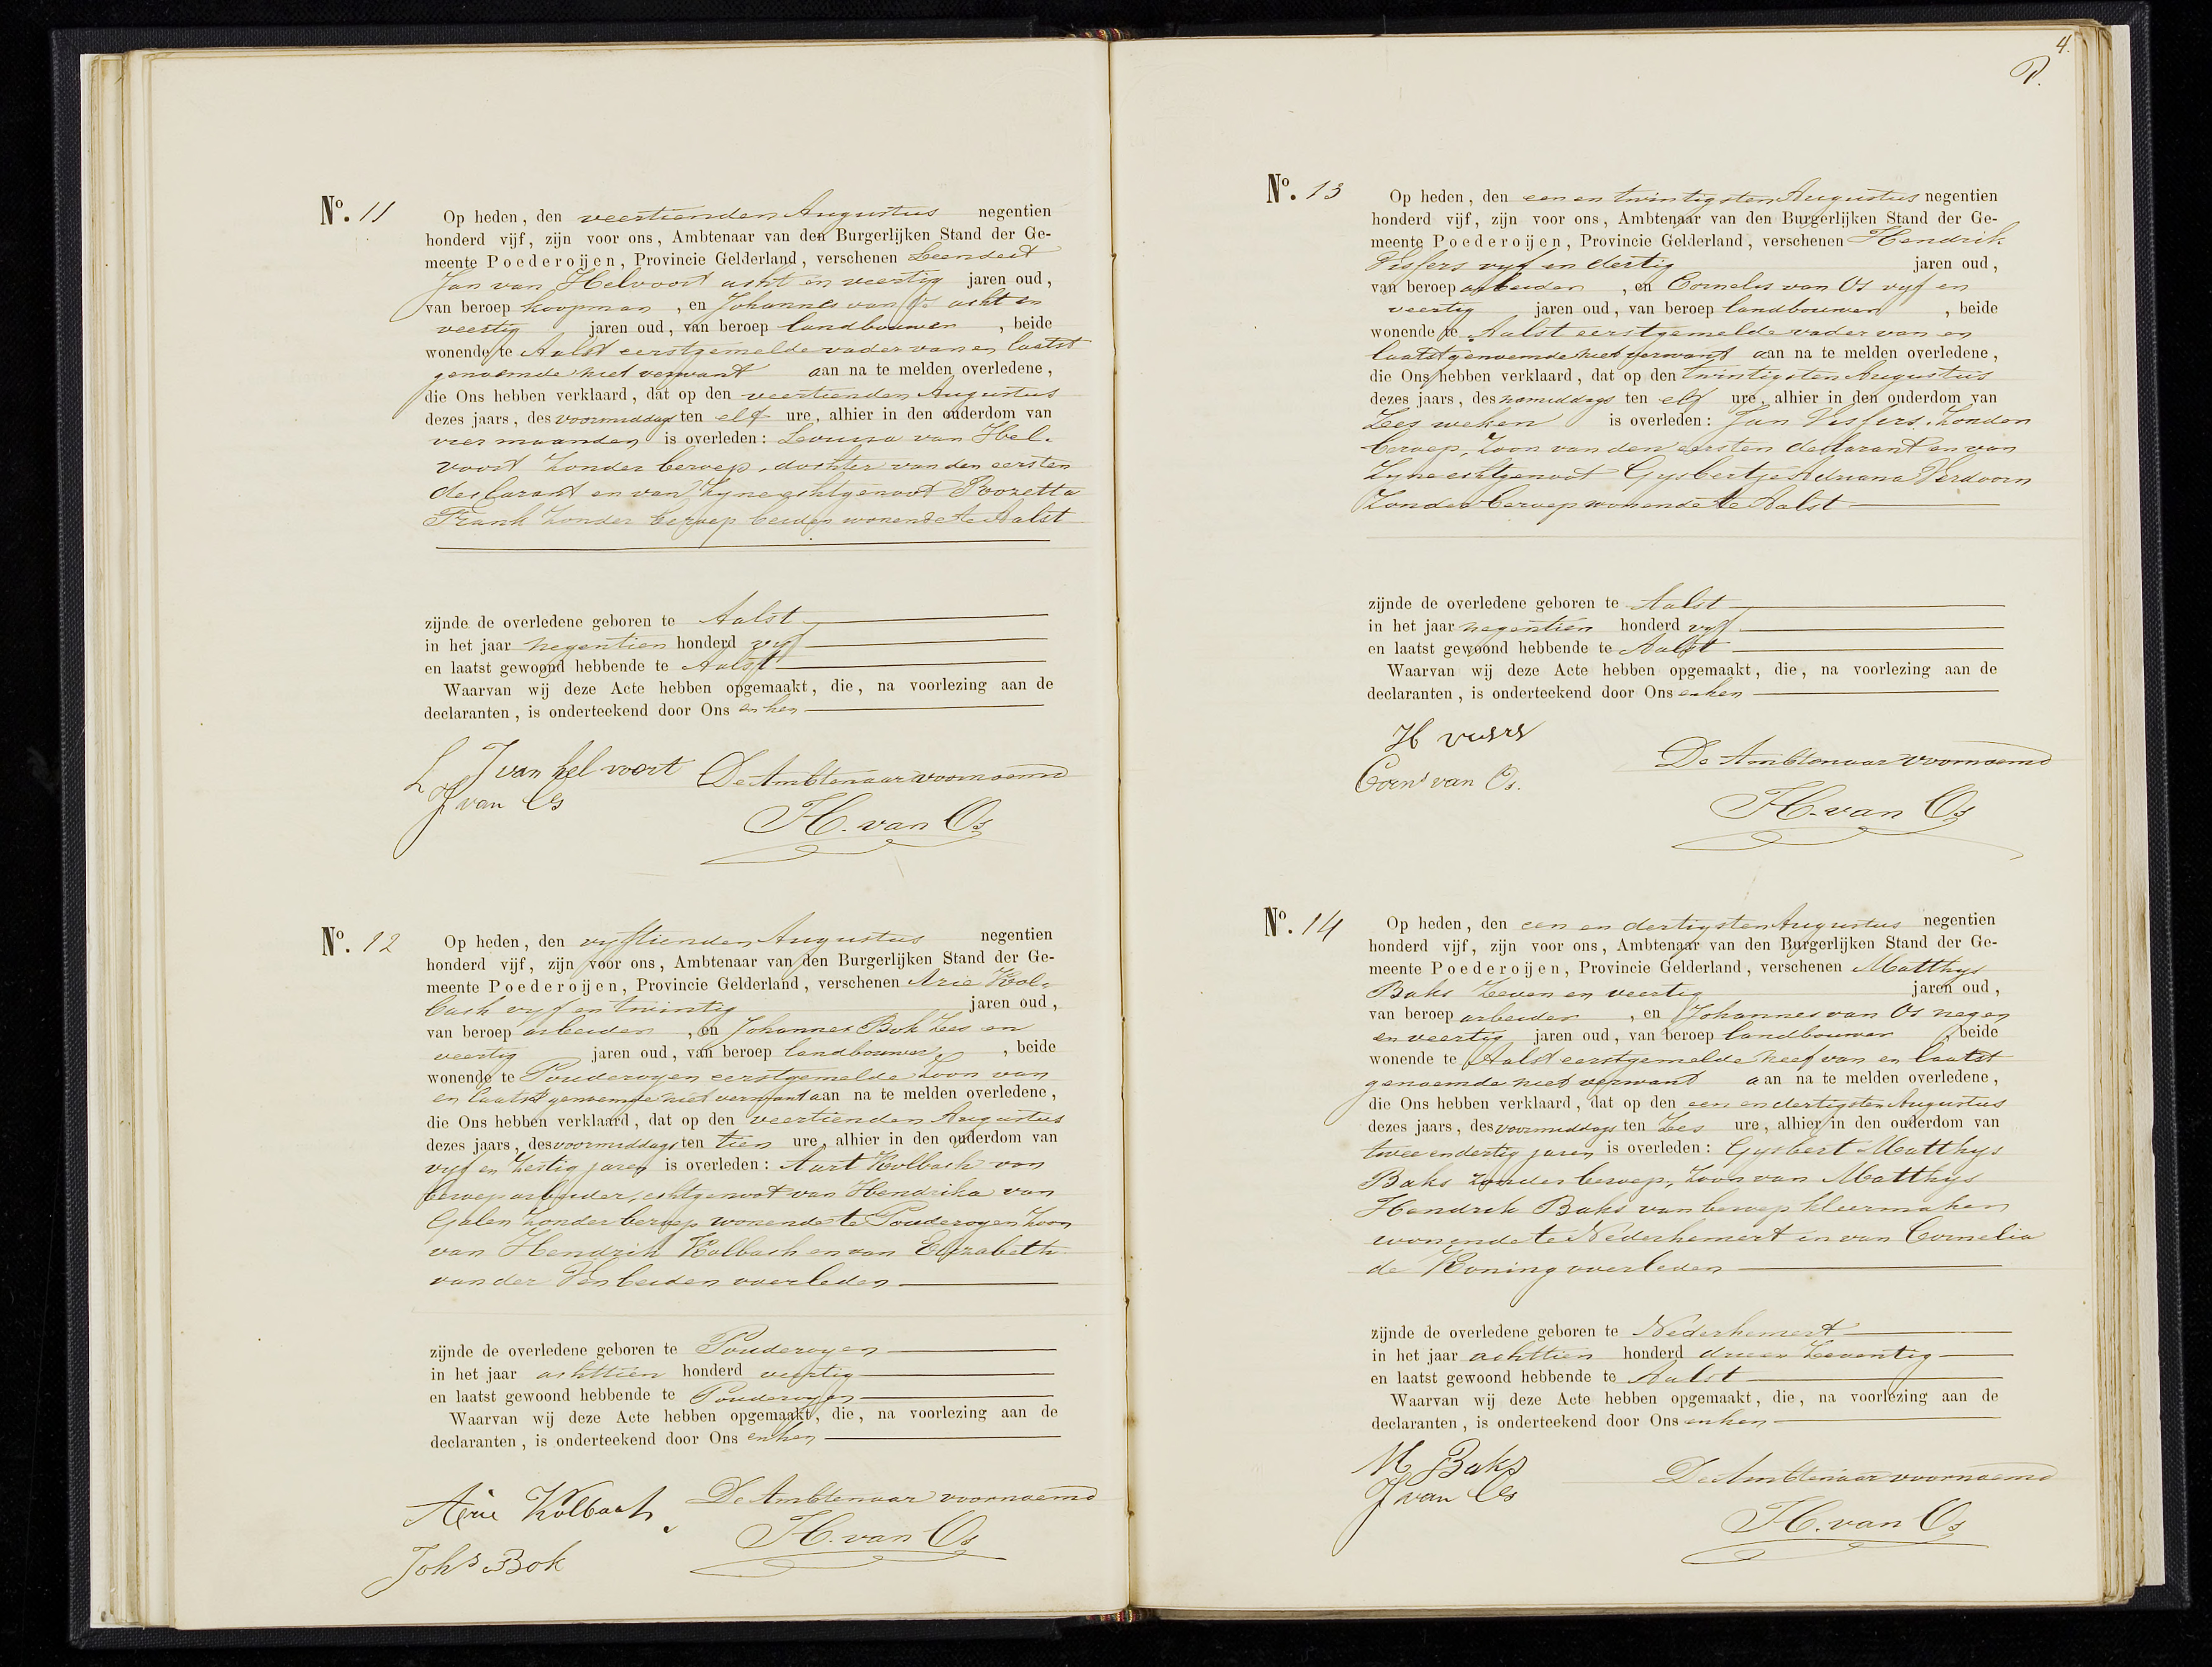 No. 11
Op heden, den veertienden Augustus negentien
honderd vijf, zijn voor ons, Ambtenaar van den Burgerlijken Stand der Ge-
meente Poederoijen, Provincie Gelderland, verschenen Leendert
Jan van Helvoort acht en veertig jaren oud,
van beroep koopman, en Johannes van Os acht en
veertig jaren oud, van beroep landbouwer, beide
wonende te Aalst eerstgemelde vader van en laatst
genoemde niet verwant aan na te melden overledene,
die Ons hebben verklaard, dat op den veertienden Augustus
dezes jaars, des voormiddags ten elf ure, alhier in den ouderdom van
vier maanden is overleden: Louisa van Hel-
voort zonder beroep, dochter van den eersten
declarant en van zyne echtgenoot Roozetta
Frank zonder beroep beiden wonende te Aalst
zijnde de overledene geboren te Aalst
in het jaar negentien honderd vyf
en laatst gewoond hebbende te Aalst
Waarvan wij deze Acte hebben opgemaakt, die, na voorlezing aan de
declaranten, is onderteekend door Ons en hen
L J van helvoort De Ambtenaar voornoemd
J van Os
H. van Os
No. 12
Op heden, den vyftienden Augustus negentien
honderd vijf, zijn voor ons, Ambtenaar van den Burgerlijken Stand der Ge-
meente Poederoijen, Provincie Gelderland, verschenen Arie Kol-
bach vyf en twintig jaren oud,
van beroep arbeider, en Johannes Bok zes en
veertig jaren oud, van beroep landbouwer, beide
wonende te Pouderoyen eerstgemelde zoon van
en laatstgenoemde niet verwant aan na te melden overledene,
die Ons hebben verklaard, dat op den veertienden Augustus
dezes jaars, des voormiddags ten tien ure, alhier in den ouderdom van
vyf en zestig jaren is overleden: Aart Kolbach van
beroep arbeider, echtgenoot van Hendrika van
Galen zonder beroep wonende te Pouderoyen zoon
van Hendrik Kolbach en van Elizabeth
van der Ven beiden overleden
zijnde de overledene geboren te Pouderoyen
in het jaar achttien honderd veertig
en laatst gewoond hebbende te Pouderoyen
Waarvan wij deze Acte hebben opgemaakt, die, na voorlezing aan de
declaranten, is onderteekend door Ons en hen
Arie Kolbach De Ambtenaar voornoemd
H. van Os
Johs Bok
4.
No. 13
Op heden, den een en twintigsten Augustus negentien
honderd vijf, zijn voor ons, Ambtenaar van den Burgerlijken Stand der Ge-
meente Poederoijen, Provincie Gelderland, verschenen Hendrik
Vissers vyf en dertig jaren oud,
van beroep arbeider, en Cornelis van Os vyf en
veertig jaren oud, van beroep landbouwer, beide
wonende te Aalst eerstgemelde vader van en
laatstgenoemde niet verwant aan na te melden overledene,
die Ons hebben verklaard, dat op den twintigsten Augustus
dezes jaars, des namiddags ten elf ure, alhier in den ouderdom van
zes weken is overleden: Jan Vissers, zonder
beroep, zoon van den eersten declarant en van
zyne echtgenoot Gysbertje Adriana Verdoorn
zonder beroep wonende te Aalst
zijnde de overledene geboren te Aalst
in het jaar negentien honderd vyf
en laatst gewoond hebbende te Aalst
Waarvan wij deze Acte hebben opgemaakt, die, na voorlezing aan de
declaranten, is onderteekend door Ons en hen
H De Ambtenaar voornoemd
Corns van Os.
H. van Os
No. 14
Op heden, den een en dertigsten Augustus negentien
honderd vijf, zijn voor ons, Ambtenaar van den Burgerlijken Stand der Ge-
meente Poederoijen, Provincie Gelderland, verschenen Matthys
Baks zeven en veertig jaren oud,
van beroep arbeider, en Johannes van Os negen
en veertig jaren oud, van beroep landbouwer, beide
wonende te Aalst eerstgemelde neef van en laatst
genoemde niet verwant aan na te melden overledene,
die Ons hebben verklaard, dat op den een en dertigsten Augustus
dezes jaars, des voormiddags ten zes ure, alhier in den ouderdom van
twee en dertig jaren is overleden: Gysbert Matthys
Baks zonder beroep, zoon van Matthys
Hendrik Baks van beroep kleermaker
wonende te Nederhemert en van Cornelia
de Koning overleden
zijnde de overledene geboren te Nederhemert
in het jaar achttien honderd drie en zeventig
en laatst gewoond hebbende te Aalst
Waarvan wij deze Acte hebben opgemaakt, die, na voorlezing aan de
declaranten, is onderteekend door Ons en hen
M Baks De Ambtenaar voornoemd
J van Os
H. van Os